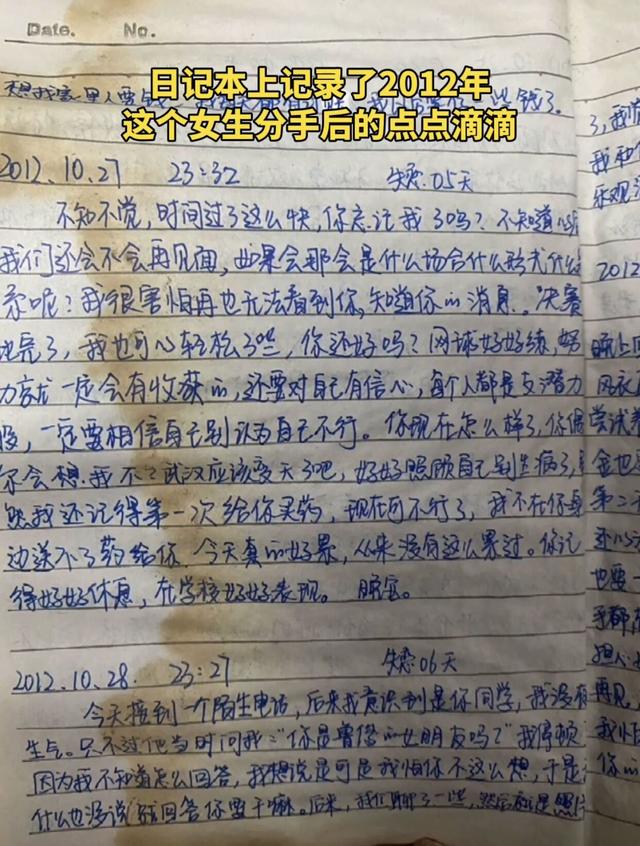 Date.      No.
日记本上记录了2012年
这个女生分手后的点点滴滴
2012.10.27  23:32  失恋.05天
不知不觉,时间过了这么快,你忘记我了吗?不知道以后
我们还会不会再见面,如果会那会是什么场合什么形式什么
景呢?我很害怕再也无法看到你,知道你的消息。决赛
也完了,我也可心轻松了些,你还好吗?网球好好练,努
力就一定会有收获的,还要对自己有信心,每个人都是支潜力
股,一定要相信自己别认为自己不行。你现在怎么样了,你偶
尔会想我不?武汉应该变天了吧,好好照顾自己别生病了,
然我还记得第一次给你买药,现在可不行了,我不在你身
边送不了药给你.今天真的好累,从来没有这么累过。你记
得好好休息,在学校好好表现。 晚安。
2012.10.28.  23:27  失恋.06天
今天接到一个陌生电话,后来我意识到是你同学,我没有
生气。只不过他当时问我:“你是曾俊的女朋友吗?”我停顿
因为我不知道怎么回答,我想说是可是我怕你不这么想,于是
什么也没说 就回答你要干嘛。后来,我们聊了一些,然后
3,我
我和
乐观
2012
晚上
风衣
尝试
金也
第二
还
也要
手都
担心
再见,
我
你的